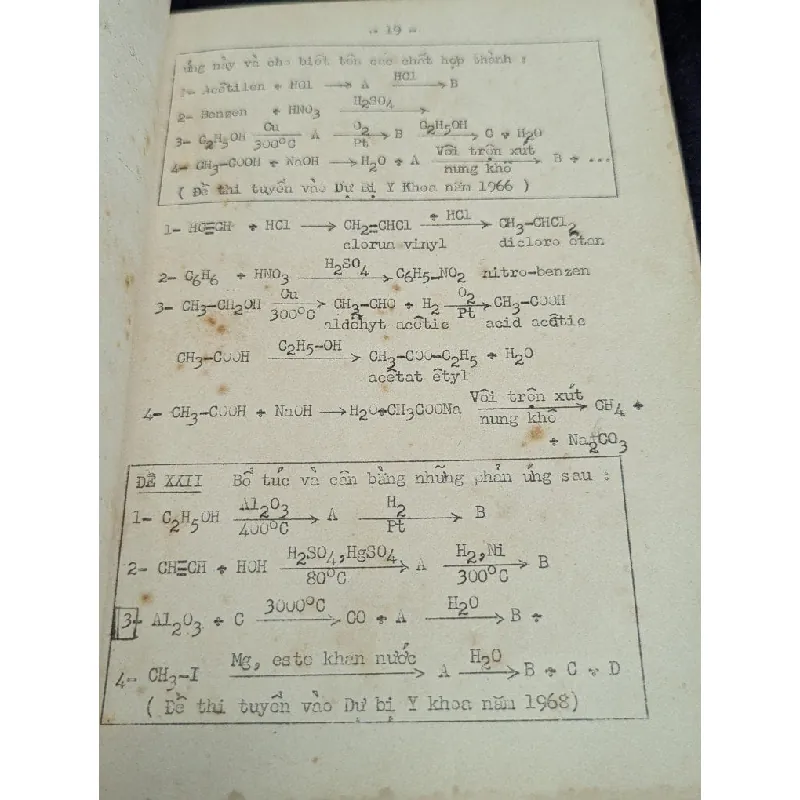 - 19 -
ứng này và cho biết tên các chất hợp thành :
1- Acêtilen + HCl ⟶ A —HCl→ B
2- Benzen + HNO3 —H2SO4→
3- C2H5OH —Cu 300°C→ A —O2 Pt→ B —C2H5OH→ C + H2O
4- CH3-COOH + NaOH ⟶ H2O + A —Vôi trộn xút nung khô→ B + ...
( Đề thi tuyển vào Dự Bị Y Khoa năm 1966 )
1- HC≡CH + HCl ⟶ CH2=CHCl —+ HCl→ CH3-CHCl2
clorua vinyl dicloro êtan
2- C6H6 + HNO3 —H2SO4→ C6H5-NO2 nitro-benzen
3- CH3-CH2OH —Cu 300°C→ CH3-CHO + H2 —O2 Pt→ CH3-COOH
aldêhyt acêtic acid acêtic
CH3-COOH —C2H5-OH→ CH3-COO-C2H5 + H2O
acêtat êtyl
4- CH3-COOH + NaOH ⟶ H2O+CH3COONa —Vôi trộn xút nung khô→ CH4 +
+ Na2CO3
ĐỀ XXII Bổ túc và cân bằng những phản ứng sau :
1- C2H5OH —Al2O3 400°C→ A —H2 Pt→ B
2- CH≡CH + HOH —H2SO4,HgSO4 80°C→ A —H2,Ni 300°C→ B
3- Al2O3 + C —3000°C→ CO + A —H2O→ B +
4- CH3-I —Mg, este khan nước→ A —H2O→ B + C + D
( Đề thi tuyển vào Dự bị Y khoa năm 1968)